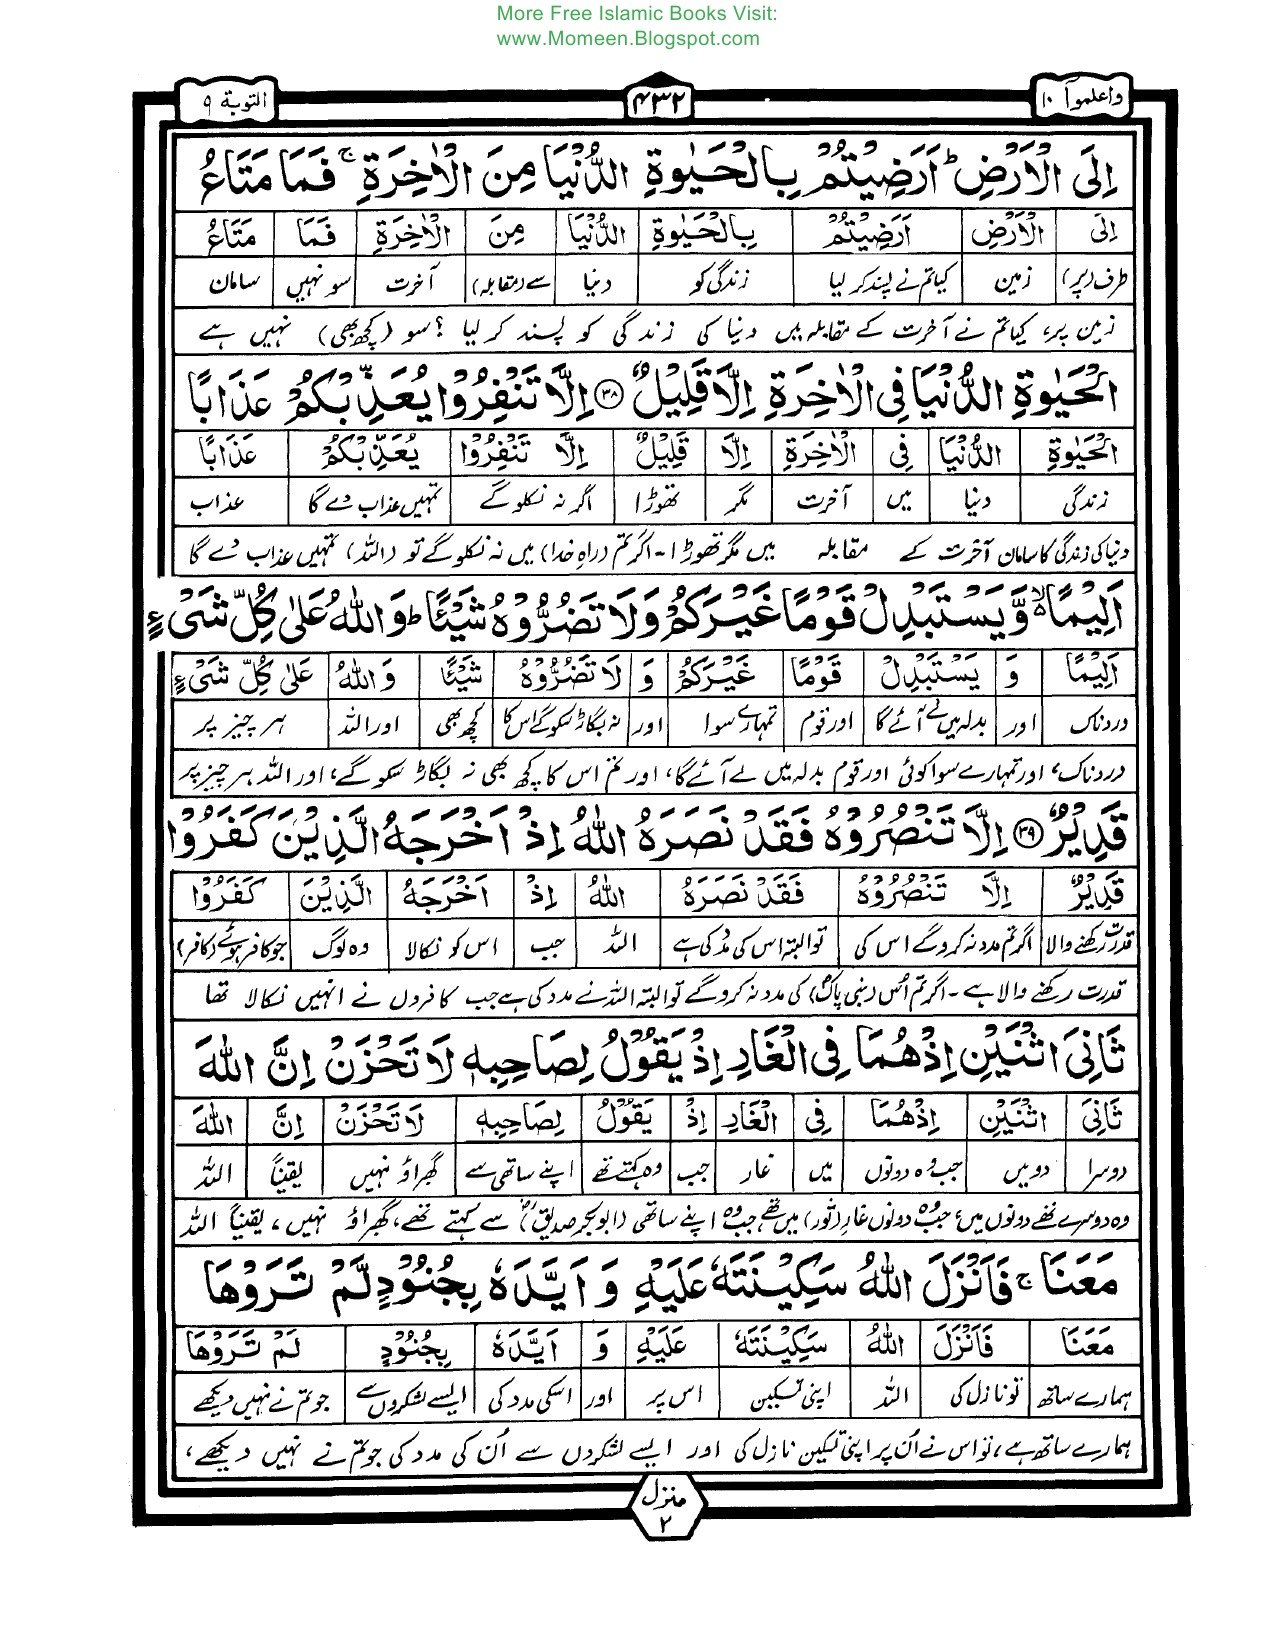 More Free Islamic Books Visit:
www.Momeen.Blogspot.com
واعلموآ ١٠
۴۳۲
التوبة ٩
اِلَى الْاَرْضِ ؕ اَرَضِيْتُمْ بِالْحَيٰوةِ الدُّنْيَا مِنَ الْاٰخِرَةِ ۚ فَمَا مَتَاعُ
اِلَى الْاَرْضِ اَرَضِيْتُمْ بِالْحَيٰوةِ الدُّنْيَا مِنَ الْاٰخِرَةِ فَمَا مَتَاعُ
طرف (پر) زمین کیا تم نے پسند کر لیا زندگی کو دنیا سے (مقابلہ) آخرت سو نہیں سامان
زمین پر، کیا تم نے آخرت کے مقابلہ میں دنیا کی زندگی کو پسند کر لیا ؟ سو (کچھ بھی) نہیں ہے
الْحَيٰوةِ الدُّنْيَا فِى الْاٰخِرَةِ اِلَّا قَلِيْلٌ ۳۸ اِلَّا تَنْفِرُوْا يُعَذِّبْكُمْ عَذَابًا
الْحَيٰوةِ الدُّنْيَا فِى الْاٰخِرَةِ اِلَّا قَلِيْلٌ اِلَّا تَنْفِرُوْا يُعَذِّبْكُمْ عَذَابًا
زندگی دنیا میں آخرت مگر تھوڑا اگر نہ نکلو گے تمہیں عذاب دے گا عذاب
دنیا کی زندگی کا سامان آخرت کے مقابلہ میں مگر تھوڑا ۔ اگر تم (راہِ خدا) میں نہ نکلو گے تو (اللہ) تمہیں عذاب دے گا
اَلِيْمًا ۙ وَّيَسْتَبْدِلْ قَوْمًا غَيْرَكُمْ وَلَا تَضُرُّوْهُ شَيْـًٔا ؕ وَاللّٰهُ عَلٰى كُلِّ شَىْءٍ
اَلِيْمًا وَ يَسْتَبْدِلْ قَوْمًا غَيْرَكُمْ وَ لَا تَضُرُّوْهُ شَيْـًٔا وَاللّٰهُ عَلٰى كُلِّ شَىْءٍ
دردناک اور بدلہ میں لے آئے گا اور قوم تمہارے سوا اور نہ بگاڑ سکو گے اس کا کچھ بھی اور اللہ ہر چیز پر
دردناک، اور تمہارے سوا کوئی اور قوم بدلہ میں لے آئے گا، اور تم اس کا کچھ بھی نہ بگاڑ سکو گے، اور اللہ ہر چیز پر
قَدِيْرٌ ۳۹ اِلَّا تَنْصُرُوْهُ فَقَدْ نَصَرَهُ اللّٰهُ اِذْ اَخْرَجَهُ الَّذِيْنَ كَفَرُوْا
قَدِيْرٌ اِلَّا تَنْصُرُوْهُ فَقَدْ نَصَرَهُ اللّٰهُ اِذْ اَخْرَجَهُ الَّذِيْنَ كَفَرُوْا
قدرت رکھنے والا اگر تم مدد نہ کرو گے اس کی تو البتہ اس کی مدد کی ہے اللہ جب اس کو نکالا وہ لوگ جو کافر ہوئے (کافر)
قدرت رکھنے والا ہے ۔ اگر تم اُس (نبی پاکؐ) کی مدد نہ کرو گے تو البتہ اللہ نے مدد کی ہے جب کافروں نے انہیں نکالا تھا
ثَانِىَ اثْنَيْنِ اِذْ هُمَا فِى الْغَارِ اِذْ يَقُوْلُ لِصَاحِبِهٖ لَا تَحْزَنْ اِنَّ اللّٰهَ
ثَانِىَ اثْنَيْنِ اِذْ هُمَا فِى الْغَارِ اِذْ يَقُوْلُ لِصَاحِبِهٖ لَا تَحْزَنْ اِنَّ اللّٰهَ
دوسرا دو میں جب وہ دونوں میں غار جب وہ کہتے تھے اپنے ساتھی سے گھبراؤ نہیں یقیناً اللہ
وہ دوسرے تھے دونوں میں، جب وہ دونوں غارِ (ثور) میں تھے، جب وہ اپنے ساتھی (ابوبکر صدیقؓ) سے کہتے تھے، گھبراؤ نہیں، یقیناً اللہ
مَعَنَا ۚ فَاَنْزَلَ اللّٰهُ سَكِيْنَتَهٗ عَلَيْهِ وَ اَيَّدَهٗ بِجُنُوْدٍ لَّمْ تَرَوْهَا
مَعَنَا فَاَنْزَلَ اللّٰهُ سَكِيْنَتَهٗ عَلَيْهِ وَ اَيَّدَهٗ بِجُنُوْدٍ لَمْ تَرَوْهَا
ہمارے ساتھ تو نازل کی اللہ اپنی تسکین اس پر اور اسکی مدد کی ایسے لشکروں سے جو تم نے نہیں دیکھے
ہمارے ساتھ ہے، تو اس نے اُن پر اپنی تسکین نازل کی اور ایسے لشکروں سے اُن کی مدد کی جو تم نے نہیں دیکھے،
منزل
۲